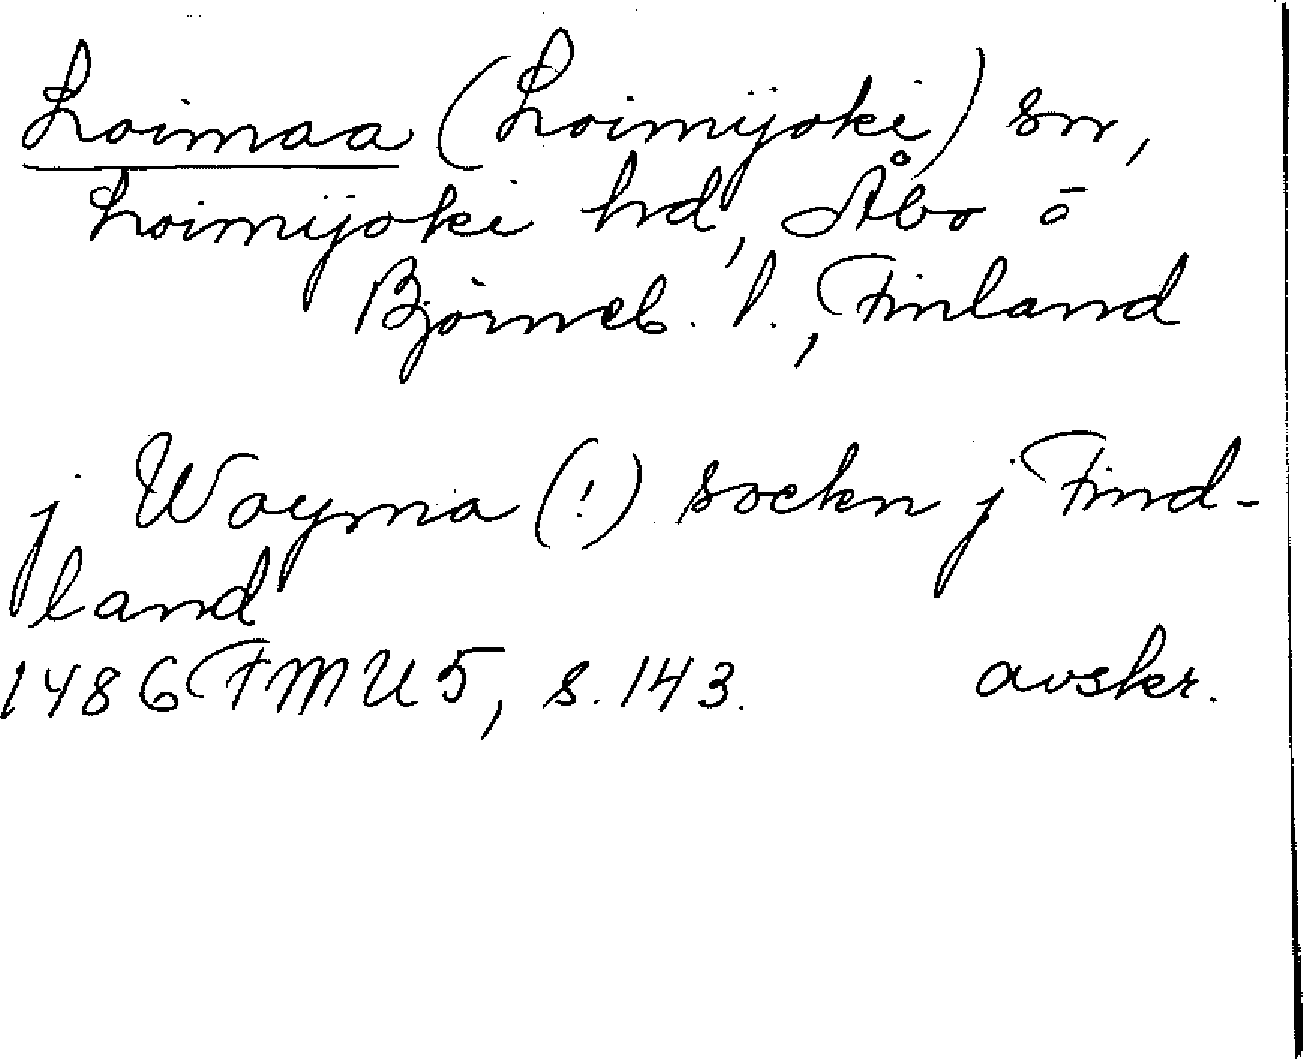 Loimaa (Loimijoki) sn,
Loimijoki hd, Åbo o
Björneb. l., Finland
j Woyma (!) sockn j Find-
land
1486 FMU 5, s. 143. avskr.